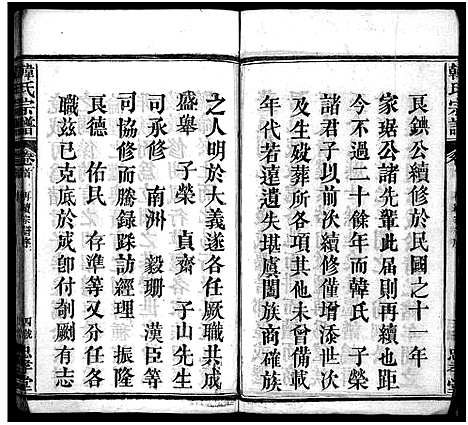 韓氏宗譜
艮錪公續修於民國之十一年
家琚公諸先輩此屆則再續也距
今不過二十餘年而韓氏 子榮
諸君子以前次續修增添世次
並生歿葬所各項其他未曾備切
年代若遠遺失堪虞闔族商確族
之人明於大義遂各任厥職共成
盛舉 子榮 貞齋 子山先生
可承修 南洲 毅珊 漢臣等
可協修而謄錄踩訪經理 振隆
艮德 佑民 存準等又分任各
職茲已克底於成卽付剞劂有志
韓氏宗譜
卷首
四